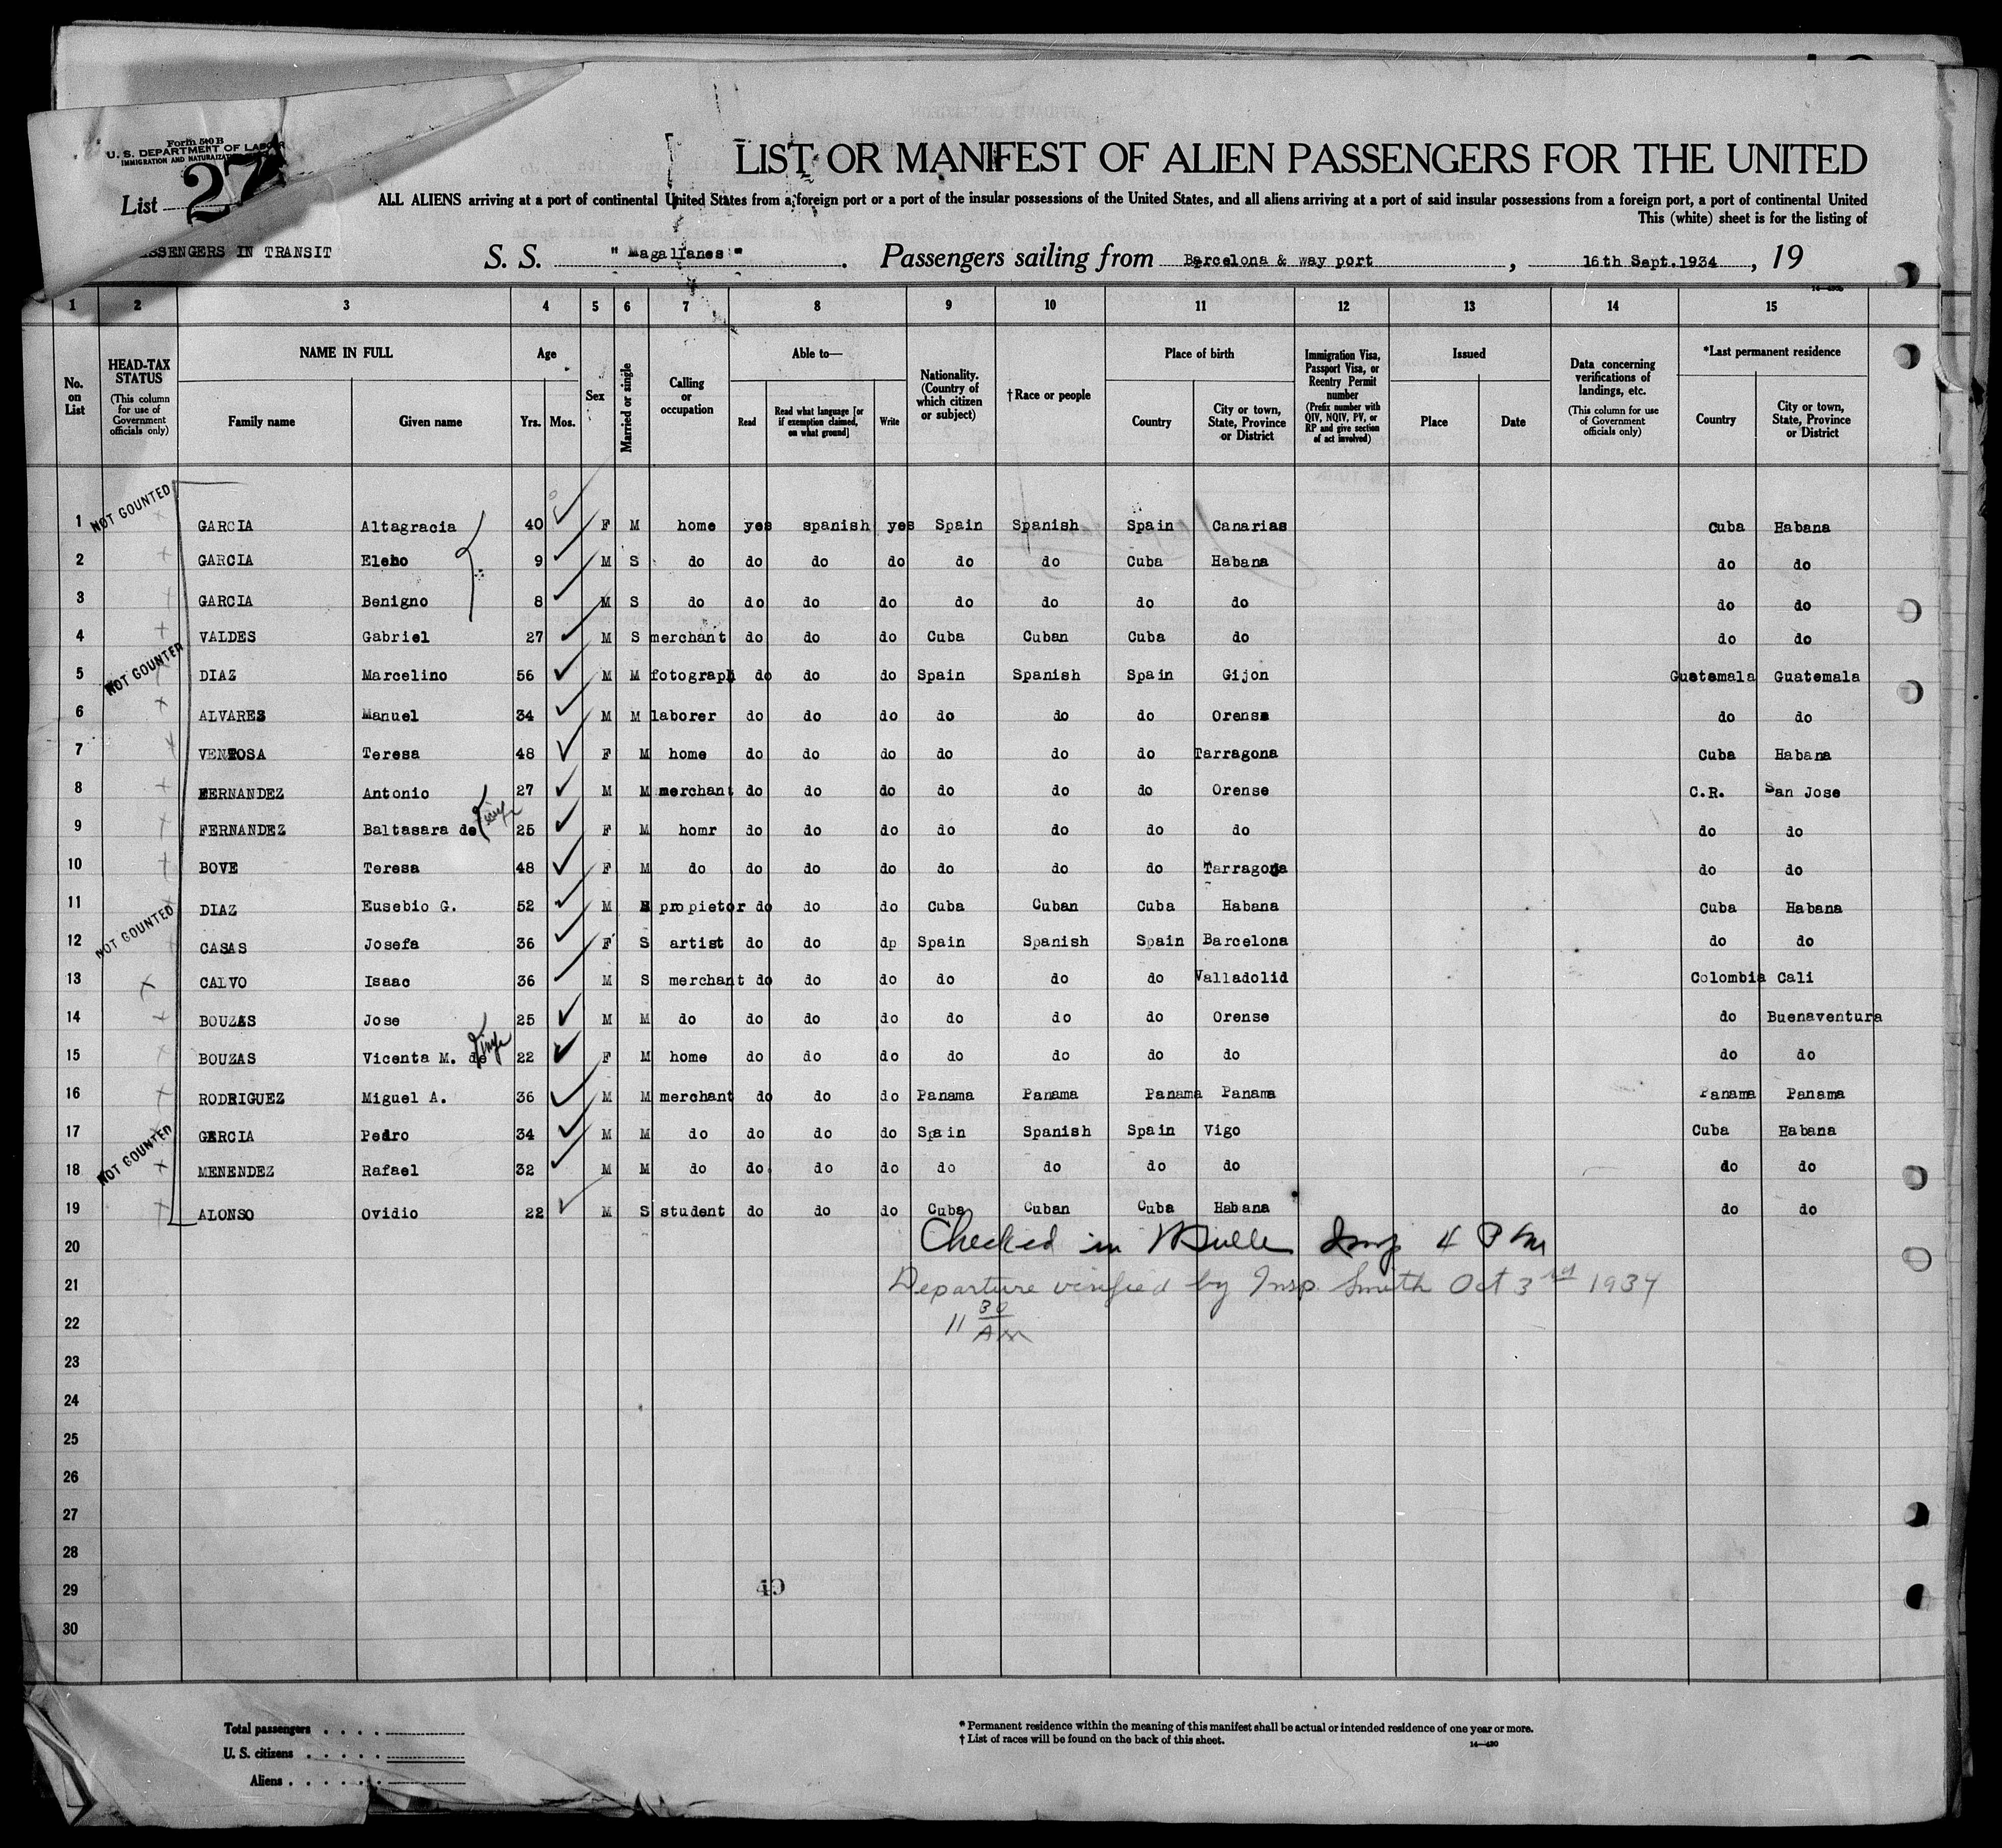 Form 500 B
U. S. DEPARTMENT OF LABOR
IMMIGRATION AND NATURALIZATION
List 27
LIST OR MANIFEST OF ALIEN PASSENGERS FOR THE UNITED
ALL ALIENS arriving at a port of continental United States from a foreign port or a port of the insular possessions of the United States, and all aliens arriving at a port of said insular possessions from a foreign port, a port of continental United
This (white) sheet is for the listing of
SSENGERS IN TRANSIT S. S. " Magallanes " . Passengers sailing from Barcelona & way port , 16th Sept.1934 , 19
1 2 3 4 5 6 7 8 9 10 11 12 13 14 15
No. on List
HEAD-TAX STATUS (This column for use of Government officials only)
NAME IN FULL Family name Given name
Age Yrs. Mos.
Sex
Married or single
Calling or occupation
Able to— Read Read what language [or if exemption claimed, on what ground] Write
Nationality. (Country of which citizen or subject)
†Race or people
Place of birth Country City or town, State, Province or District
Immigration Visa, Passport Visa, or Reentry Permit number (Prefix number with QIV, NQIV, PV, or RP and give section of act involved)
Issued Place Date
Data concerning verifications of landings, etc. (This column for use of Government officials only)
*Last permanent residence Country City or town, State, Province or District
NOT COUNTED
1 GARCIA Altagracia 40 F M home yes spanish yes Spain Spanish Spain Canarias Cuba Habana
2 GARCIA 9 M S do do do do do do Cuba Habana do do
3 GARCIA Benigno 8 M S do do do do do do do do do do
4 VALDES Gabriel 27 M S merchant do do do Cuba Cuban Cuba do do do
NOT COUNTED
5 DIAZ Marcelino 56 M M fotograph do do do Spain Spanish Spain Gijon Guatemala Guatemala
6 ALVARES Manuel 34 M M laborer do do do do do do Orense do do
7 VENTOSA Teresa 48 F M home do do do do do do Tarragona Cuba Habana
8 FERNANDEZ Antonio 27 M M merchant do do do do do do Orense C.R. San Jose
9 FERNANDEZ Baltasara de 25 F M homr do do do do do do do do do
10 BOVE Teresa 48 F M do do do do do do do Tarragona do do
11 DIAZ Eusebio G. 52 M propietor do do do Cuba Cuban Cuba Habana Cuba Habana
NOT COUNTED
12 CASAS Josefa 36 F S artist do do dp Spain Spanish Spain Barcelona do do
13 CALVO Isaac 36 M S merchant do do do do do do Valladolid Colombia Cali
14 BOUZAS Jose 25 M M do do do do do do do Orense do Buenaventura
15 BOUZAS Vicenta M. de 22 F M home do do do do do do do do do
16 RODRIGUEZ Miguel A. 36 M M merchant do do do Panama Panama Panama Panama Panama Panama
17 GARCIA Pedro 34 M M do do do do Spain Spanish Spain Vigo Cuba Habana
NOT COUNTED
18 MENENDEZ Rafael 32 M M do do do do do do do do do do
19 ALONSO Ovidio 22 M S student do do do Cuba Cuban Cuba Habana do do
20 Checked in Insp 4 P M
21 Departure verified by Insp. Smith Oct 3rd 1934
22 11 30 AM
23
24
25
26
27
28
29 40
30
Total passengers
U. S. citizens
Aliens
* Permanent residence within the meaning of this manifest shall be actual or intended residence of one year or more.
† List of races will be found on the back of this sheet.
14—430